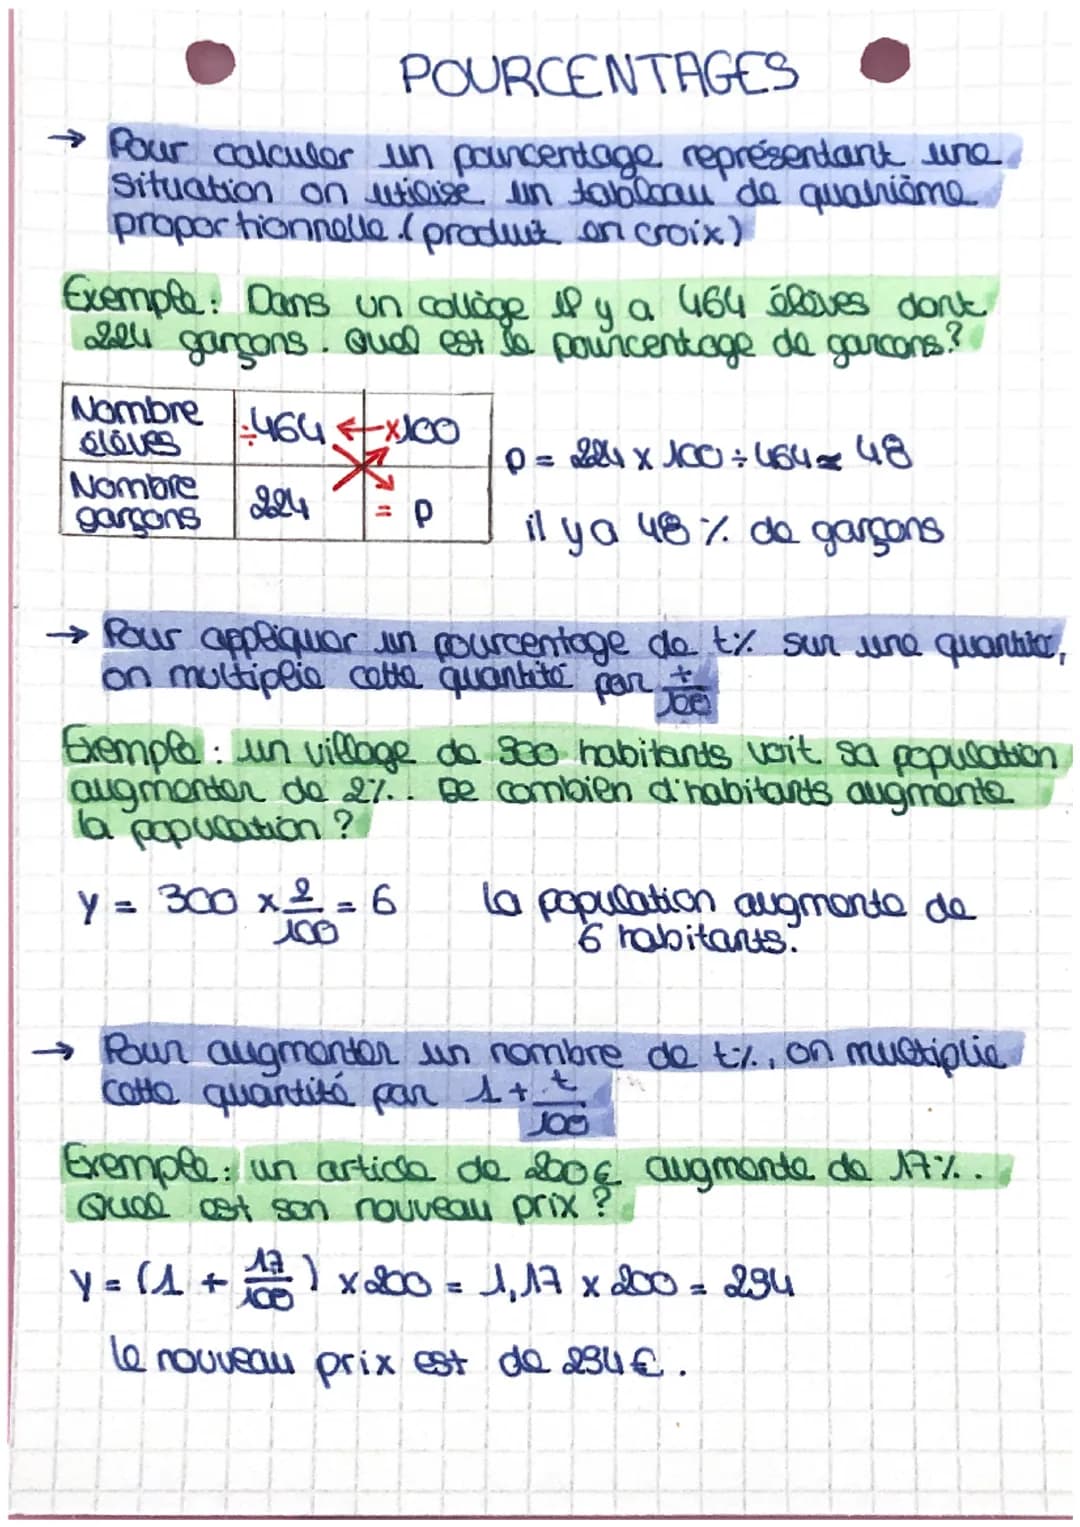 POURCENTAGES
→ Pour calculer un pourcentage représentant une
situation on utilise un tableau de quatrième
proportionnelle. (produit en croix)
Exemple : Dans un collège il y a 464 élèves dont
224 garçons. Quel est le pourcentage de garcons?
Nombre élèves ÷464 ← ×100
Nombre garçons 224 = p
p = 224 x 100 ÷ 464 ≈ 48
il y a 48 % de garçons
→ Pour appliquer un pourcentage de t% sur une quantité,
on multiplie cette quantité par t/100
Exemple : un village de 300 habitants voit sa population
augmenter de 2%. De combien d'habitants augmente
la population ?
y = 300 x 2/100 = 6
la population augmente de
6 habitants.
→ Pour augmenter un nombre de t%, on multiplie
cette quantité par 1 + t/100
Exemple : un article de 200€ augmente de 17%.
Quel est son nouveau prix ?
y = (1 + 17/100) x 200 = 1,17 x 200 = 234
le nouveau prix est de 234€.